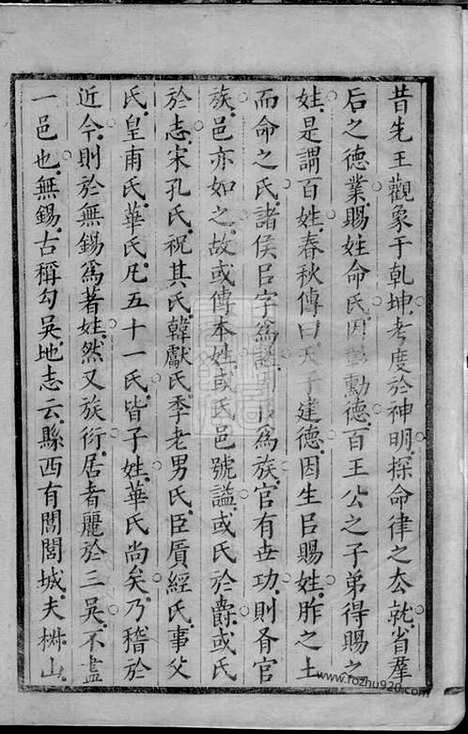 昔先王觀象于乾坤考度於神明探命律之厺就省羣
后之德業賜姓命氏因彰勳德百王公之子弟得賜之
姓是謂百姓春秋傳曰天子建德因生㠯賜姓胙之土
而命之氏諸侯㠯字為謚因㠯為族官有世功則有官
族邑亦如之故或傳本姓或氏邑號謚或氏於爵或氏
於志宋孔氏祝其氏韓獻氏季老男氏臣屓經氏事父
氏皇甫氏華氏凡五十一氏皆子姓華氏尚矣乃稽於
近今則於無錫為著姓然又族衍居者麗於三吳不盡
一邑也無錫古稱勾吳地志云縣西有闔閭城夫椒山
www.rozhu920.com